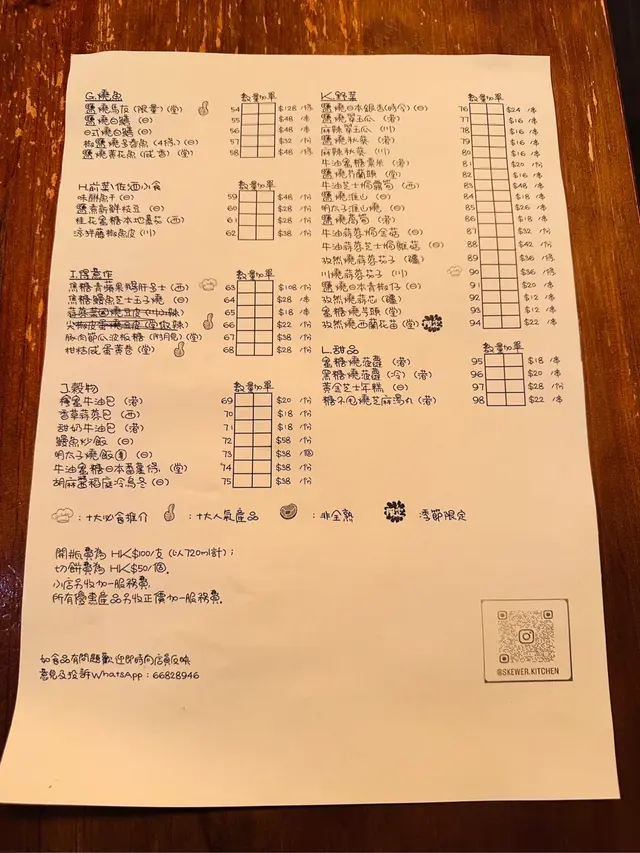 G.燒魚 數量加單
鹽燒馬友(限量)(堂) 54 $128 /條
鹽燒白鱔 (日) 55 $48 /串
日式燒白鱔 (日) 56 $48 /串
椒鹽燒多春魚 (4條)(日) 57 $32 /份
鹽燒黃花魚 (成香) (堂) 58 $48 /份
H.前菜/佐酒小食
味醂魚干 (日) 59 $48 /份
鹽煮新鮮枝豆 (日) 60 $28 /份
桂花蜜糖本地番茄 (西) 61 $28 /份
涼拌藤椒魚皮 (川) 62 $38 /份
I.得意作 數量加單
焦糖青蘋果鵝肝多士 (西) 63 $108 /份
焦糖鰻魚芝士玉子燒 (日) 64 $28 /串
65 $18 /串
66 $22 /串
豚肉節瓜波板糖 (明月見)(堂) 67 $38 /份
柑桔咸蛋黃卷 (堂) 68 $28 /份
J.穀物 數量加單
檸蜜牛油包 (港) 69 $20 /份
香草蒜蓉包 (西) 70 $18 /份
甜奶牛油包 (港) 71 $18 /份
鰻魚炒飯 (日) 72 $58 /份
明太子燒飯團 (日) 73 $38 /個
牛油蜜糖日本番薯條 (堂) 74 $38 /份
胡麻醬稻庭冷烏冬(日) 75 $38 /份
K.野菜 數量加單
鹽燒日本銀杏(時令)(日) 76 $24 /串
鹽燒翠玉瓜 (港) 77 $16 /串
麻辣翠玉瓜 (川) 78 $16 /串
鹽燒秋葵 (港) 79 $16 /串
麻辣秋葵 (川) 80 $16 /串
牛油蜜糖粟米 (港) 81 $16 /串
鹽燒芥蘭頭 (堂) 82 $16 /串
牛油芝士焗蘑菇 (西) 83 $48 /串
鹽燒淮山 (日) 84 $18 /串
明太子淮山燒 (日) 85 $26 /串
鹽燒萵筍 (港) 86 $16 /串
牛油蒜蓉焗金菇 (日) 87 $32 /份
牛油蒜蓉芝士焗靚菇 (日) 88 $42 /份
孜然燒蒜蓉茄子 (疆) 89 $36 /份
川燒蒜蓉茄子 (川) 90 $36 /份
鹽燒日本青椒仔 (日) 91 $20 /串
孜然燒蒜芯 (疆) 92 $12 /串
蜜糖燒芋頭 (堂) 93 $12 /串
孜然燒西蘭花苗 (堂) 限定 94 $22 /串
L.甜品 數量加單
蜜糖燒菠蘿 (港) 95 $18 /串
黑糖燒菠蘿 (冷) (港) 96 $20 /串
黃金芝士年糕 (日) 97 $28 /份
糖不甩燒芝麻湯丸 (港) 98 $22 /串
:十大必食推介 :十大人氣產品 :非全熟 限定 :季節限定
開瓶費為 HK$100/支 (以720ml計);
切餅費為 HK$50/個.
小店另收加一服務費.
所有優惠產品另收正價加一服務費.
如食品有問題歡迎即時向店員反映
意見及投訴WhatsApp:66828946
@SKEWER.KITCHEN